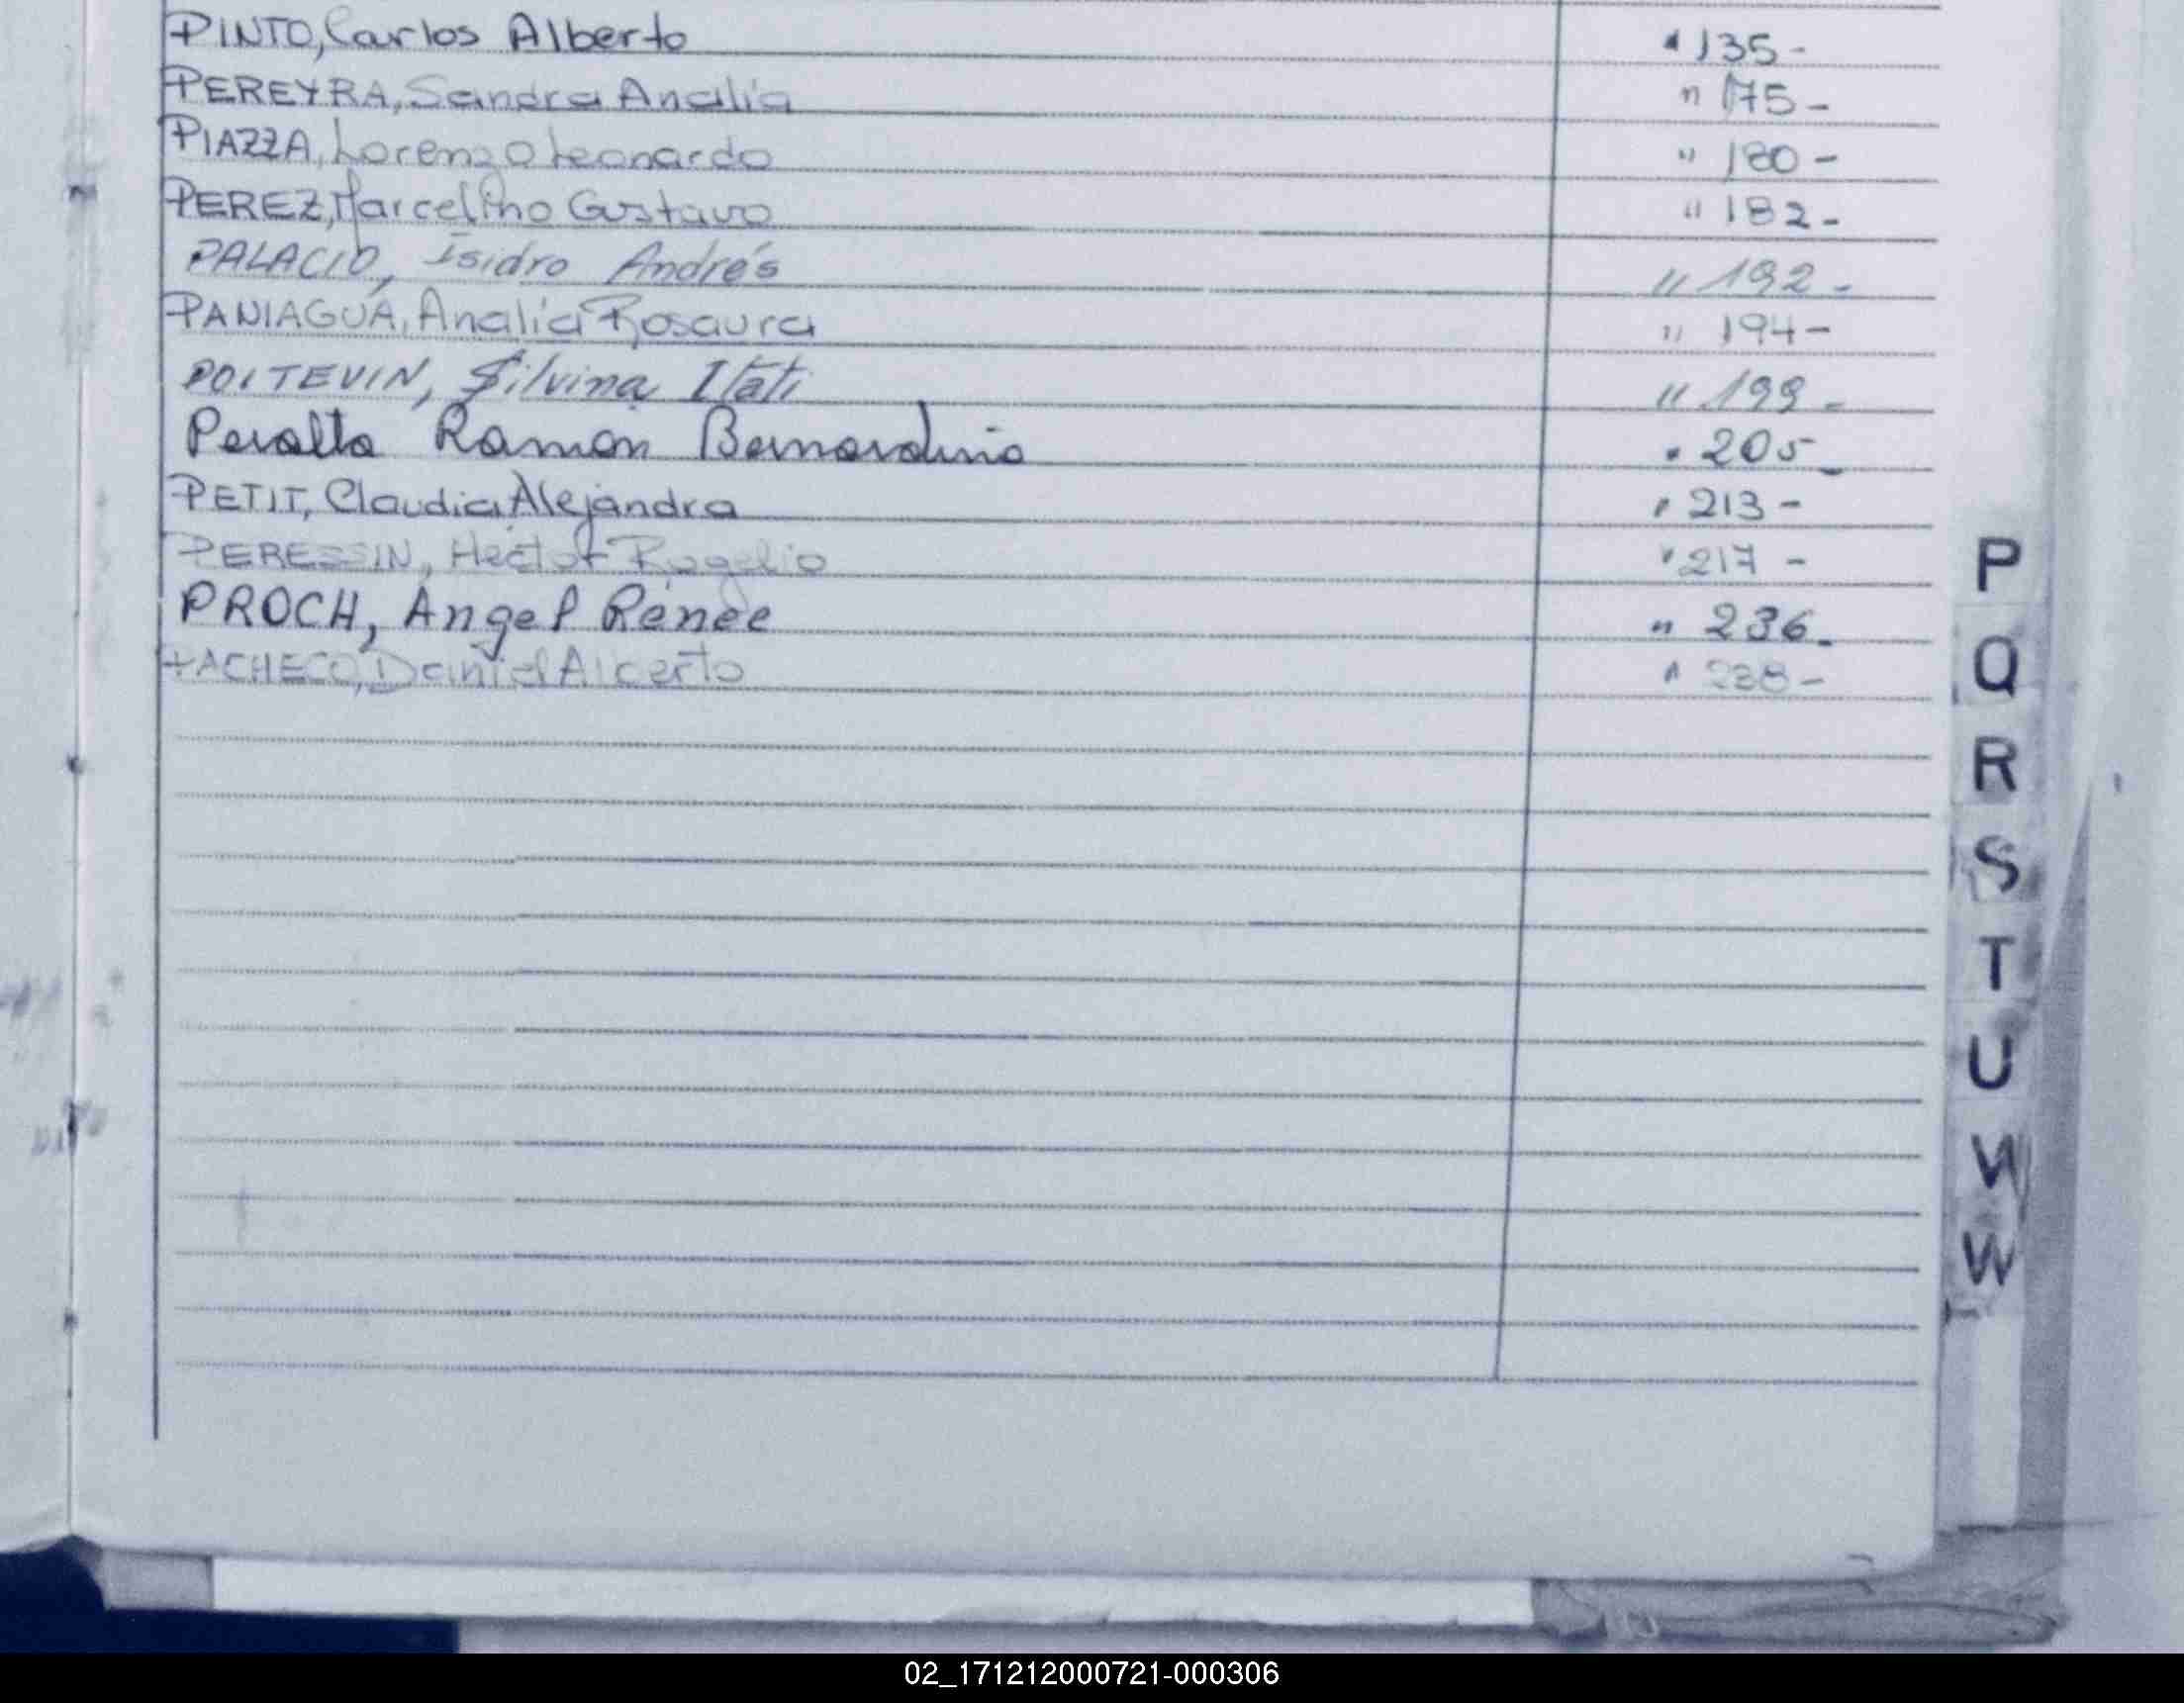 PINTO, Carlos Alberto " 135-
PEREYRA, Sandra Analía " 175-
PIAZZA, Lorenzo Leonardo " 180-
PEREZ, Marcelino Gustavo " 182-
PALACIO, Isidro Andrés " 192-
PANIAGUA, Analia Rosaura " 194-
POITEVIN, Silvina Itatí " 199-
Peralta Ramon Bernardino " 205-
PETIT, Claudia Alejandra " 213-
PERESSIN, Hector Rogelio " 217-
PROCH, Angel Renee " 236-
PACHECO, Daniel Alberto " 238-
P
Q
R
S
T
U
V
W
02_171212000721-000306